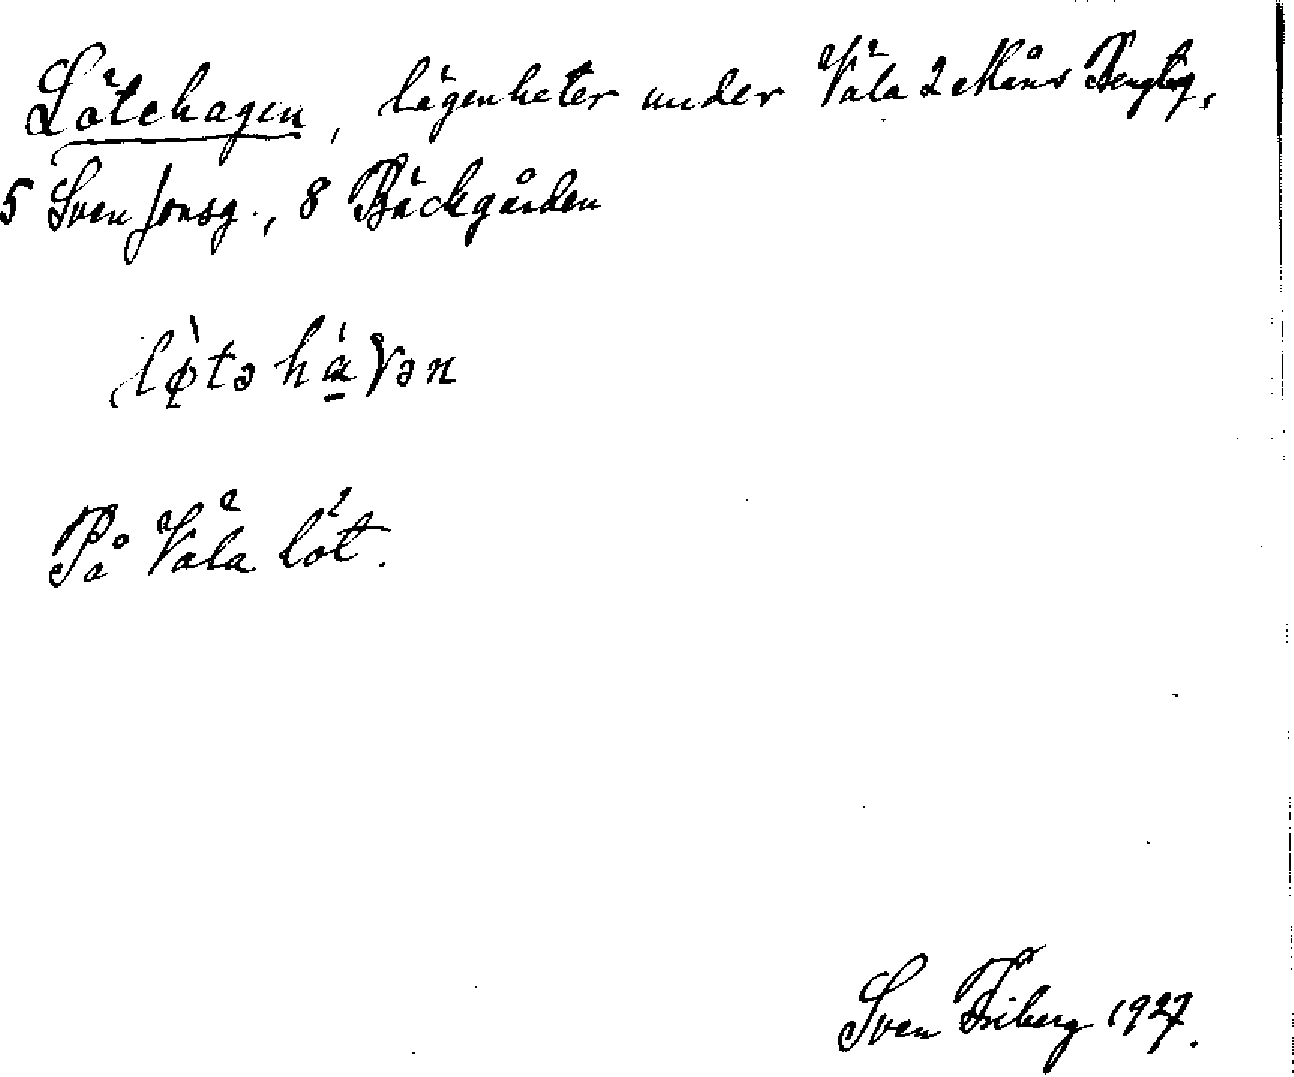 Lötehagen, lägenheter under Väla 2 Måns Bengtsg,
5 Sven Jonsg., 8 Bäckgården
lø̀təhá̱ɣən
På Väla löt.
Sven Friberg 1927.